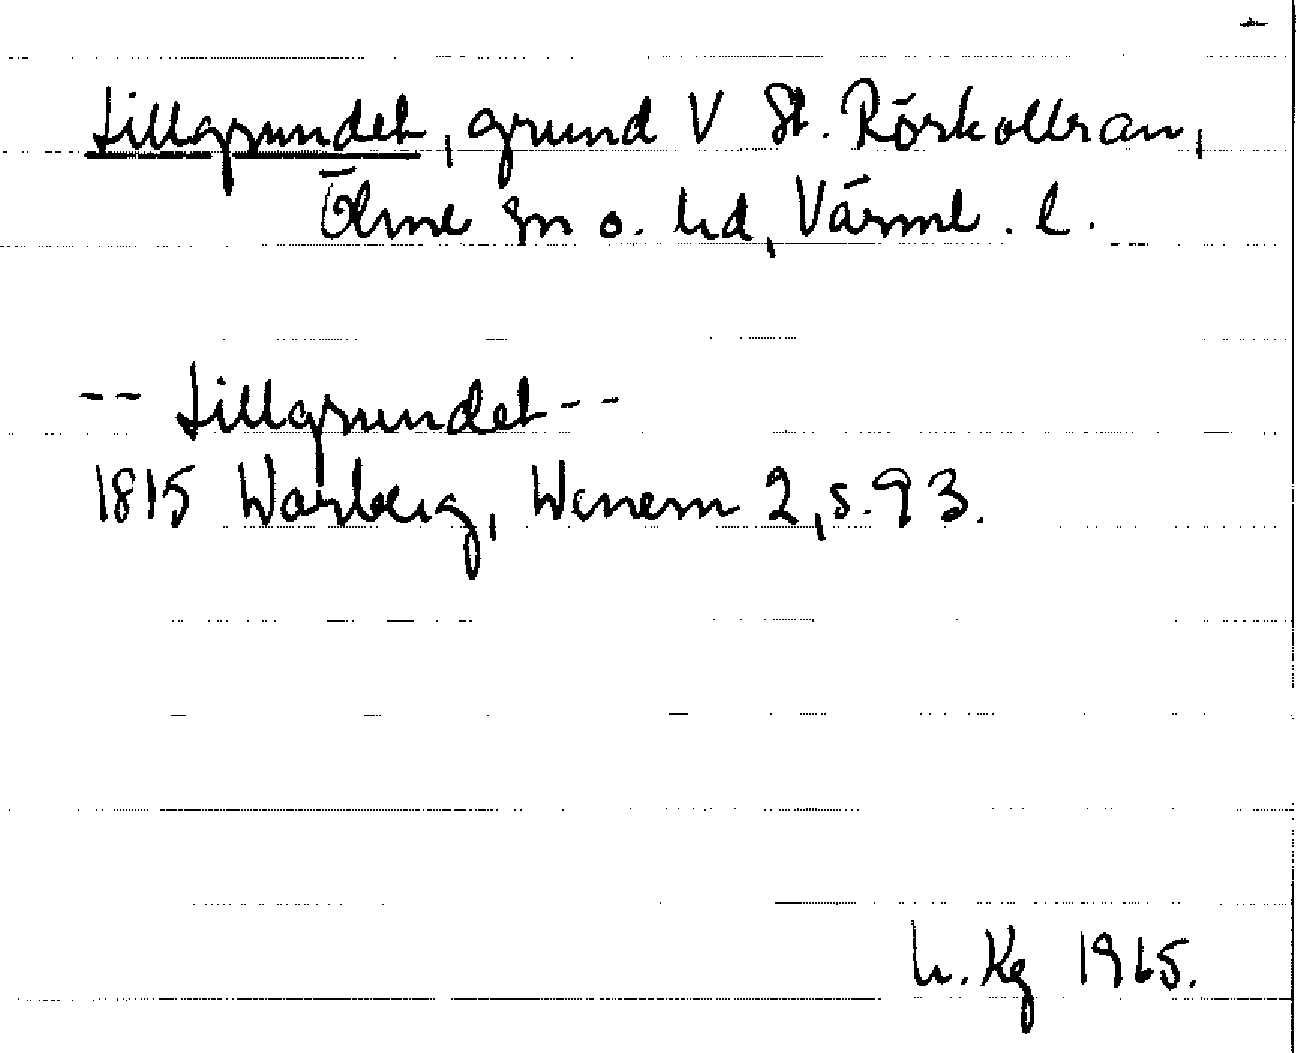 Lillgrundet, grund V St. Rörkollran,
Ölme sn o. hd, Värml. l.
-- Lillgrundet --
1815 Warberg, Wenern 2, s. 93.
L. Kg 1965.